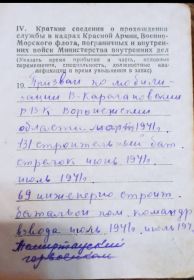 IV. Краткие сведения о прохождении
службы в кадрах Красной Армии, Военно-
Морского флота, пограничных и внутрен-
них войск Министерства внутренних дел
(Указать время прибытия в части,
перемещения, специальность, должностные ква-
лификации и время увольнения в запас)
19. Призван по мобили-
зации В-Карачановский
РВК Воронежской
области март 1941г.
131 строительный бат.
стрелок июнь 1941г.
июль 1941г.
69 инженерно строит.
батальон пом. командир
взвода июль 1941г. июль 197